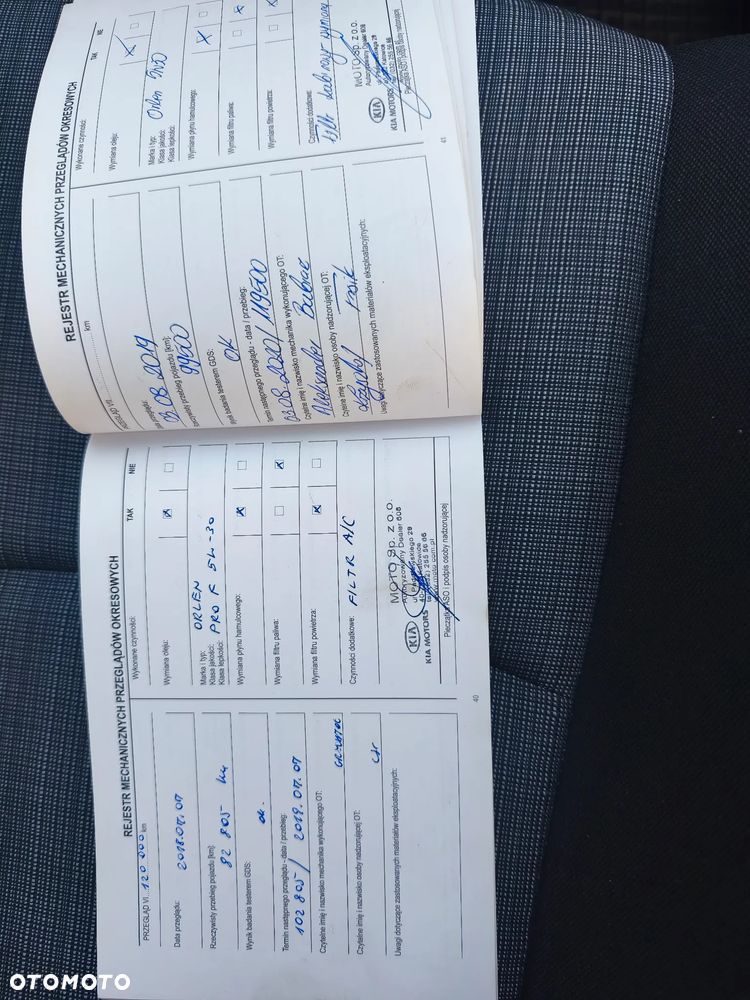 REJESTR MECHANICZNYCH PRZEGLĄDÓW OKRESOWYCH
PRZEGLĄD VI... 120 000 km
Data przeglądu:
2018.07.07
Rzeczywisty przebieg pojazdu [km]:
82 805
Wynik badania testerem GDS:
ok.
Termin następnego przeglądu - data / przebieg:
102 805 / 2019.07.07
Czytelne imię i nazwisko mechanika wykonującego OT:
Czytelne imię i nazwisko osoby nadzorującej OT:
Uwagi dotyczące zastosowanych materiałów eksploatacyjnych:
Wykonane czynności:
TAK NIE
Wymiana oleju:
Marka i typ: ORLEN
Klasa jakości: PRO F 5W-30
Klasa lepkości:
Wymiana płynu hamulcowego:
Wymiana filtru paliwa:
Wymiana filtru powietrza:
Czynności dodatkowe: FILTR A/C
MOTO Sp. z o.o.
Autoryzowany Dealer 608
KIA
KIA MOTORS
Pieczątka ASO i podpis osoby nadzorującej
40
REJESTR MECHANICZNYCH PRZEGLĄDÓW OKRESOWYCH
PRZEGLĄD VII km
03.08.2019
99200
Wynik badania testerem GDS:
OK
Termin następnego przeglądu - data / przebieg:
03.08.2020 / 119200
Czytelne imię i nazwisko mechanika wykonującego OT:
Aleksander
Czytelne imię i nazwisko osoby nadzorującej OT:
Uwagi dotyczące zastosowanych materiałów eksploatacyjnych:
Wykonane czynności:
TAK NIE
Wymiana oleju:
Marka i typ: Orlen 5W30
Klasa jakości:
Klasa lepkości:
Wymiana płynu hamulcowego:
Wymiana filtru paliwa:
Wymiana filtru powietrza:
Czynności dodatkowe:
MOTO Sp. z o.o.
Autoryzowany Dealer 608
KIA
KIA MOTORS
Pieczątka ASO i podpis osoby nadzorującej
41
OTOMOTO